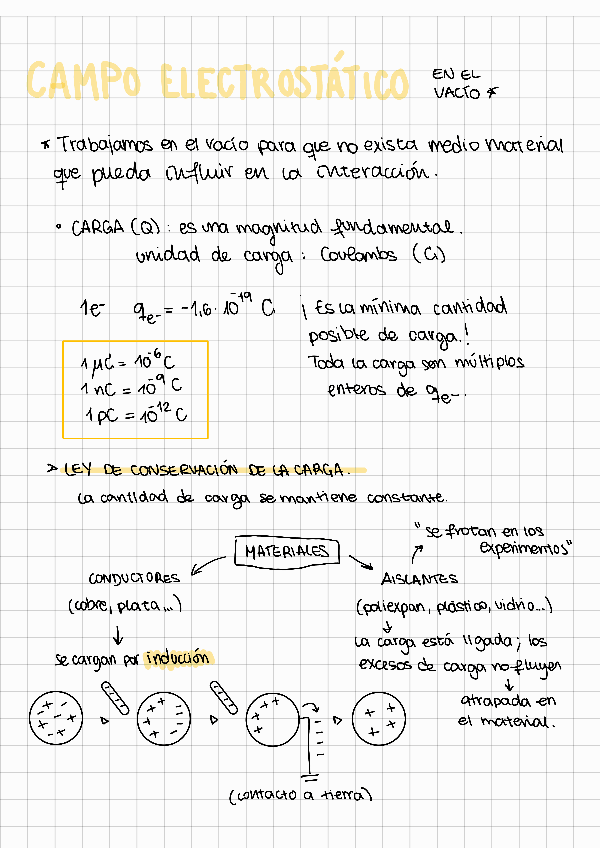 CAMPO ELECTROSTÁTICO EN EL VACÍO *
* Trabajamos en el vacío para que no exista medio material
que pueda influir en la interacción.
• CARGA (Q): es una magnitud fundamental.
unidad de carga: Coulombs (C)
1e⁻ qe⁻ = -1,6·10⁻¹⁹ C
¡Es la mínima cantidad
posible de carga!
Toda la carga son múltiplos
enteros de qe⁻.
1 μC = 10⁻⁶ C
1 nC = 10⁻⁹ C
1 pC = 10⁻¹² C
> LEY DE CONSERVACIÓN DE LA CARGA.
La cantidad de carga se mantiene constante.
MATERIALES
CONDUCTORES
(cobre, plata...)
↓
se cargan por inducción
"se frotan en los
experimentos"
AISLANTES
(poliexpan, plástico, vidrio...)
↓
la carga está ligada; los
excesos de carga no fluyen
↓
atrapada en
el material.
(contacto a tierra)